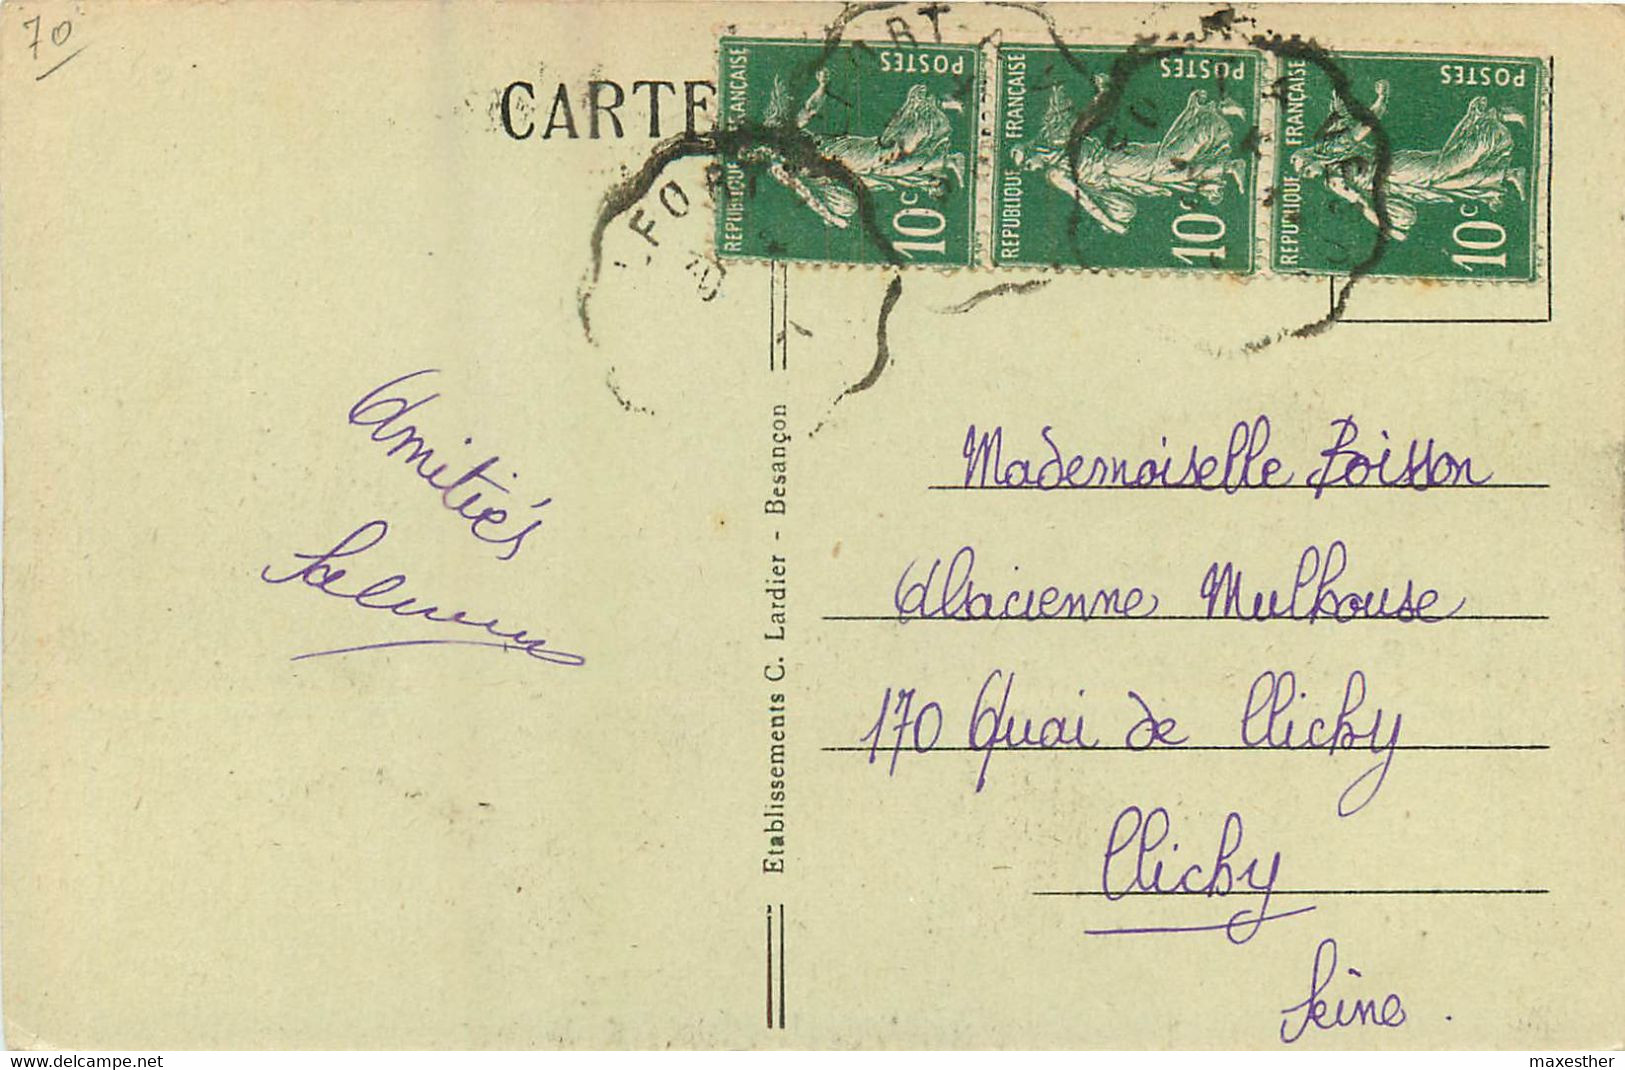 70
CARTE
RÉPUBLIQUE FRANÇAISE
POSTES
10c
RÉPUBLIQUE FRANÇAISE
POSTES
10c
RÉPUBLIQUE FRANÇAISE
POSTES
10c
FORT
Amitiés
Etablissements C. Lardier - Besançon
Mademoiselle Boisson
Alsacienne Mulhouse
170 Quai de Clichy
Clichy
Seine.
delcampe.net
maxesther